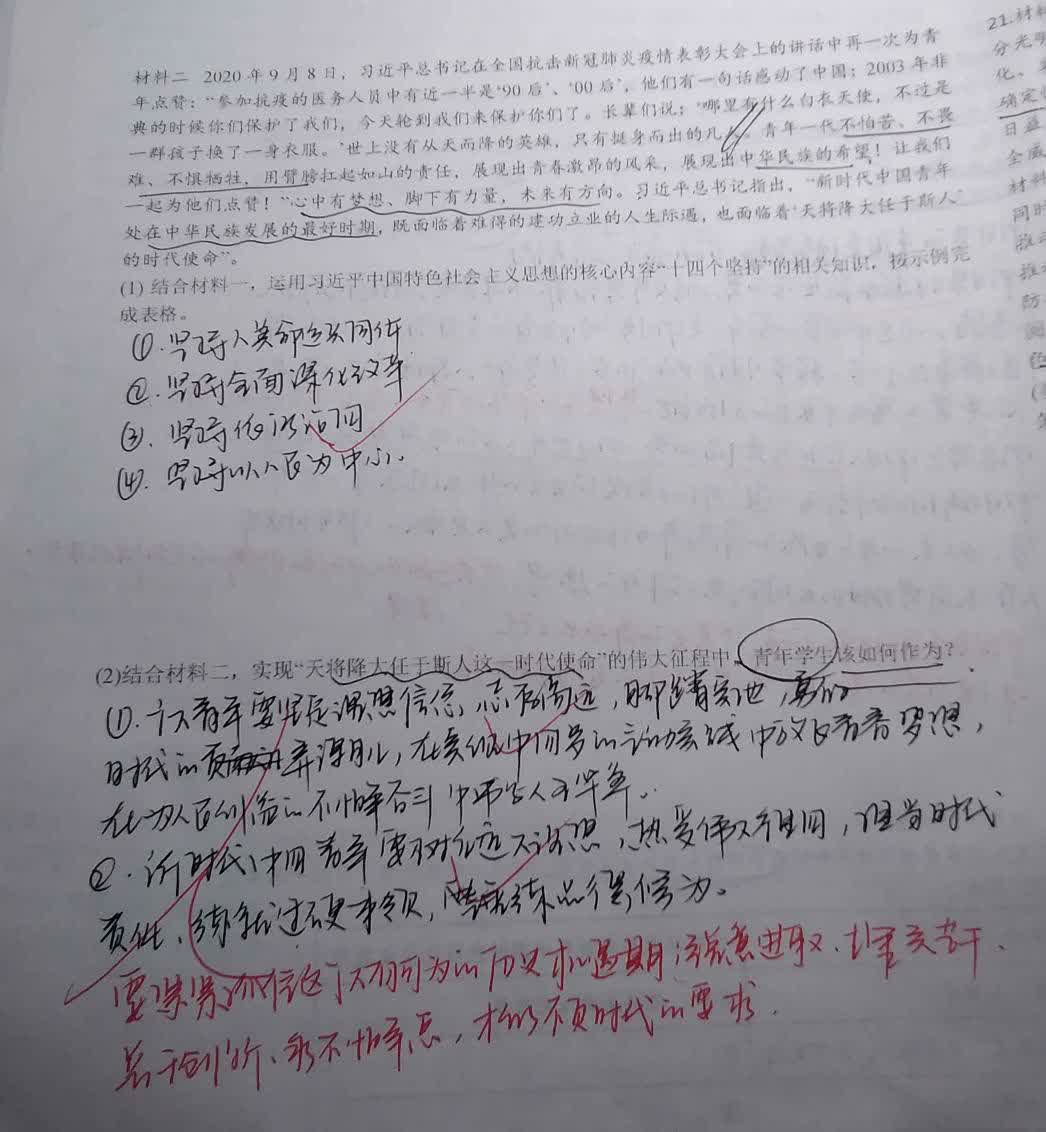 材料二 2020年9月8日，习近平总书记在全国抗击新冠肺炎疫情表彰大会上的讲话中再一次为青
年点赞：“参加抗疫的医务人员中有近一半是‘90后’、‘00后’，他们有一句话感动了中国：2003年非
典的时候你们保护了我们，今天轮到我们来保护你们了。长辈们说：‘哪里有什么白衣天使，不过是
一群孩子换了一身衣服。’世上没有从天而降的英雄，只有挺身而出的凡人。青年一代不怕苦、不畏
难、不惧牺牲，用臂膀扛起如山的责任，展现出青春激昂的风采，展现出中华民族的希望！让我们
一起为他们点赞！”心中有梦想、脚下有力量，未来有方向。习近平总书记指出，“新时代中国青年
处在中华民族发展的最好时期，既面临着难得的建功立业的人生际遇，也面临着‘天将降大任于斯人’
的时代使命”。
(1) 结合材料一，运用习近平中国特色社会主义思想的核心内容“十四个坚持”的相关知识，按示例完
成表格。
①.坚持人类命运共同体
②.坚持全面深化改革
③.坚持依法治国
④.坚持以人民为中心.
(2)结合材料二，实现“天将降大任于斯人这一时代使命”的伟大征程中，青年学生该如何作为？
①.广大青年要坚定理想信念，志存高远，脚踏实地，勇做
时代的弄潮儿，在实现中国梦的生动实践中放飞青春梦想，
在为人民利益的不懈奋斗中书写人生华章.
②.新时代中国青年要树立远大理想，热爱伟大祖国，担当时代
责任、练就过硬本领，锤炼品德修为。
要紧紧抓住这个大有可为的历史机遇期 锐意进取、埋头苦干、
勇于创新、永不懈怠，才能不负时代的要求.
21.材料
分光明
化、
确定
日益
全威
材料
同时
推动
推
防
色